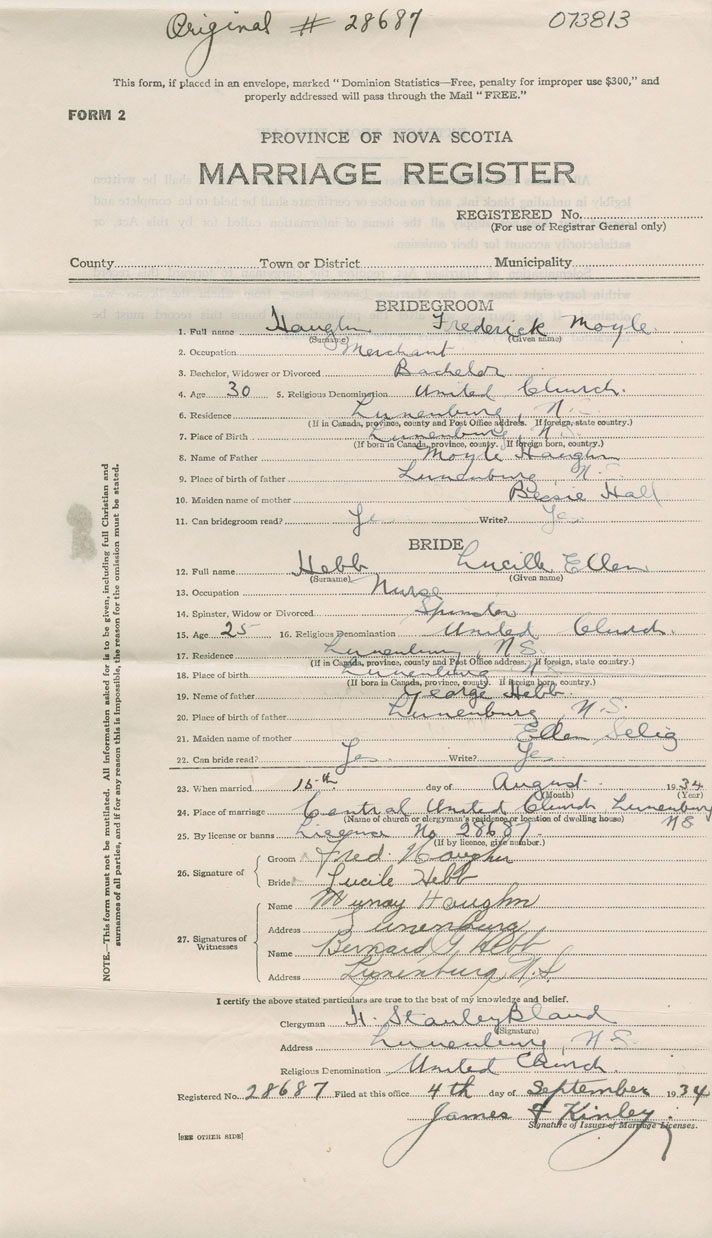 Original # 28687 073813
This form, if placed in an envelope, marked "Dominion Statistics—Free, penalty for improper use $300," and
properly addressed will pass through the Mail "FREE."
FORM 2
PROVINCE OF NOVA SCOTIA
MARRIAGE REGISTER
REGISTERED No.
(For use of Registrar General only)
County Town or District Municipality
BRIDEGROOM
1. Full name Haughn Frederick Moyle
(Surname) (Given name)
2. Occupation Merchant
3. Bachelor, Widower or Divorced Bachelor
4. Age 30 5. Religious Denomination United Church.
6. Residence Lunenburg, N.S.
(If in Canada, province, county and Post Office address. If foreign, state country.)
7. Place of Birth Lunenburg, N.S.
(If born in Canada, province, county. If foreign born, country.)
8. Name of Father Moyle Haughn
9. Place of birth of father Lunenburg, N.S.
10. Maiden name of mother Bessie Hall
11. Can bridegroom read? Yes Write? Yes
BRIDE
12. Full name Hebb Lucille Ellen
(Surname) (Given name)
13. Occupation Nurse
14. Spinster, Widow or Divorced Spinster
15. Age 25 16. Religious Denomination United Church.
17. Residence Lunenburg, N.S.
(If in Canada, province, county and Post Office address. If foreign, state country.)
18. Place of birth Lunenburg N.S.
(If born in Canada, province, county. If foreign born, country.)
19. Name of father George Hebb.
20. Place of birth of father Lunenburg, N.S.
21. Maiden name of mother Ellen Selig
22. Can bride read? Yes Write? Yes
23. When married 15th day of August 1934
(Month) (Year)
24. Place of marriage Central United Church Lunenburg
(Name of church or clergyman's residence or location of dwelling house) N S
25. By license or banns Licence No 28687.
(If by licence, give number.)
26. Signature of Groom Fred Haughn
Bride Lucile Hebb
27. Signatures of Witnesses Name Murray Haughn
Address Lunenburg
Name Bernard G. Hebb
Address Lunenburg, N.S.
NOTE.—This form must not be mutilated. All information asked for is to be given, including full Christian and
surnames of all parties, and if for any reason this is impossible, the reason for the omission must be stated.
I certify the above stated particulars are true to the best of my knowledge and belief.
Clergyman H. Stanley Bland
(Signature)
Address Lunenburg, N.S.
Religious Denomination United Church
Registered No. 28687 Filed at this office 4th day of September 1934
James F Kinley
Signature of Issuer of Marriage Licenses.
[SEE OTHER SIDE]